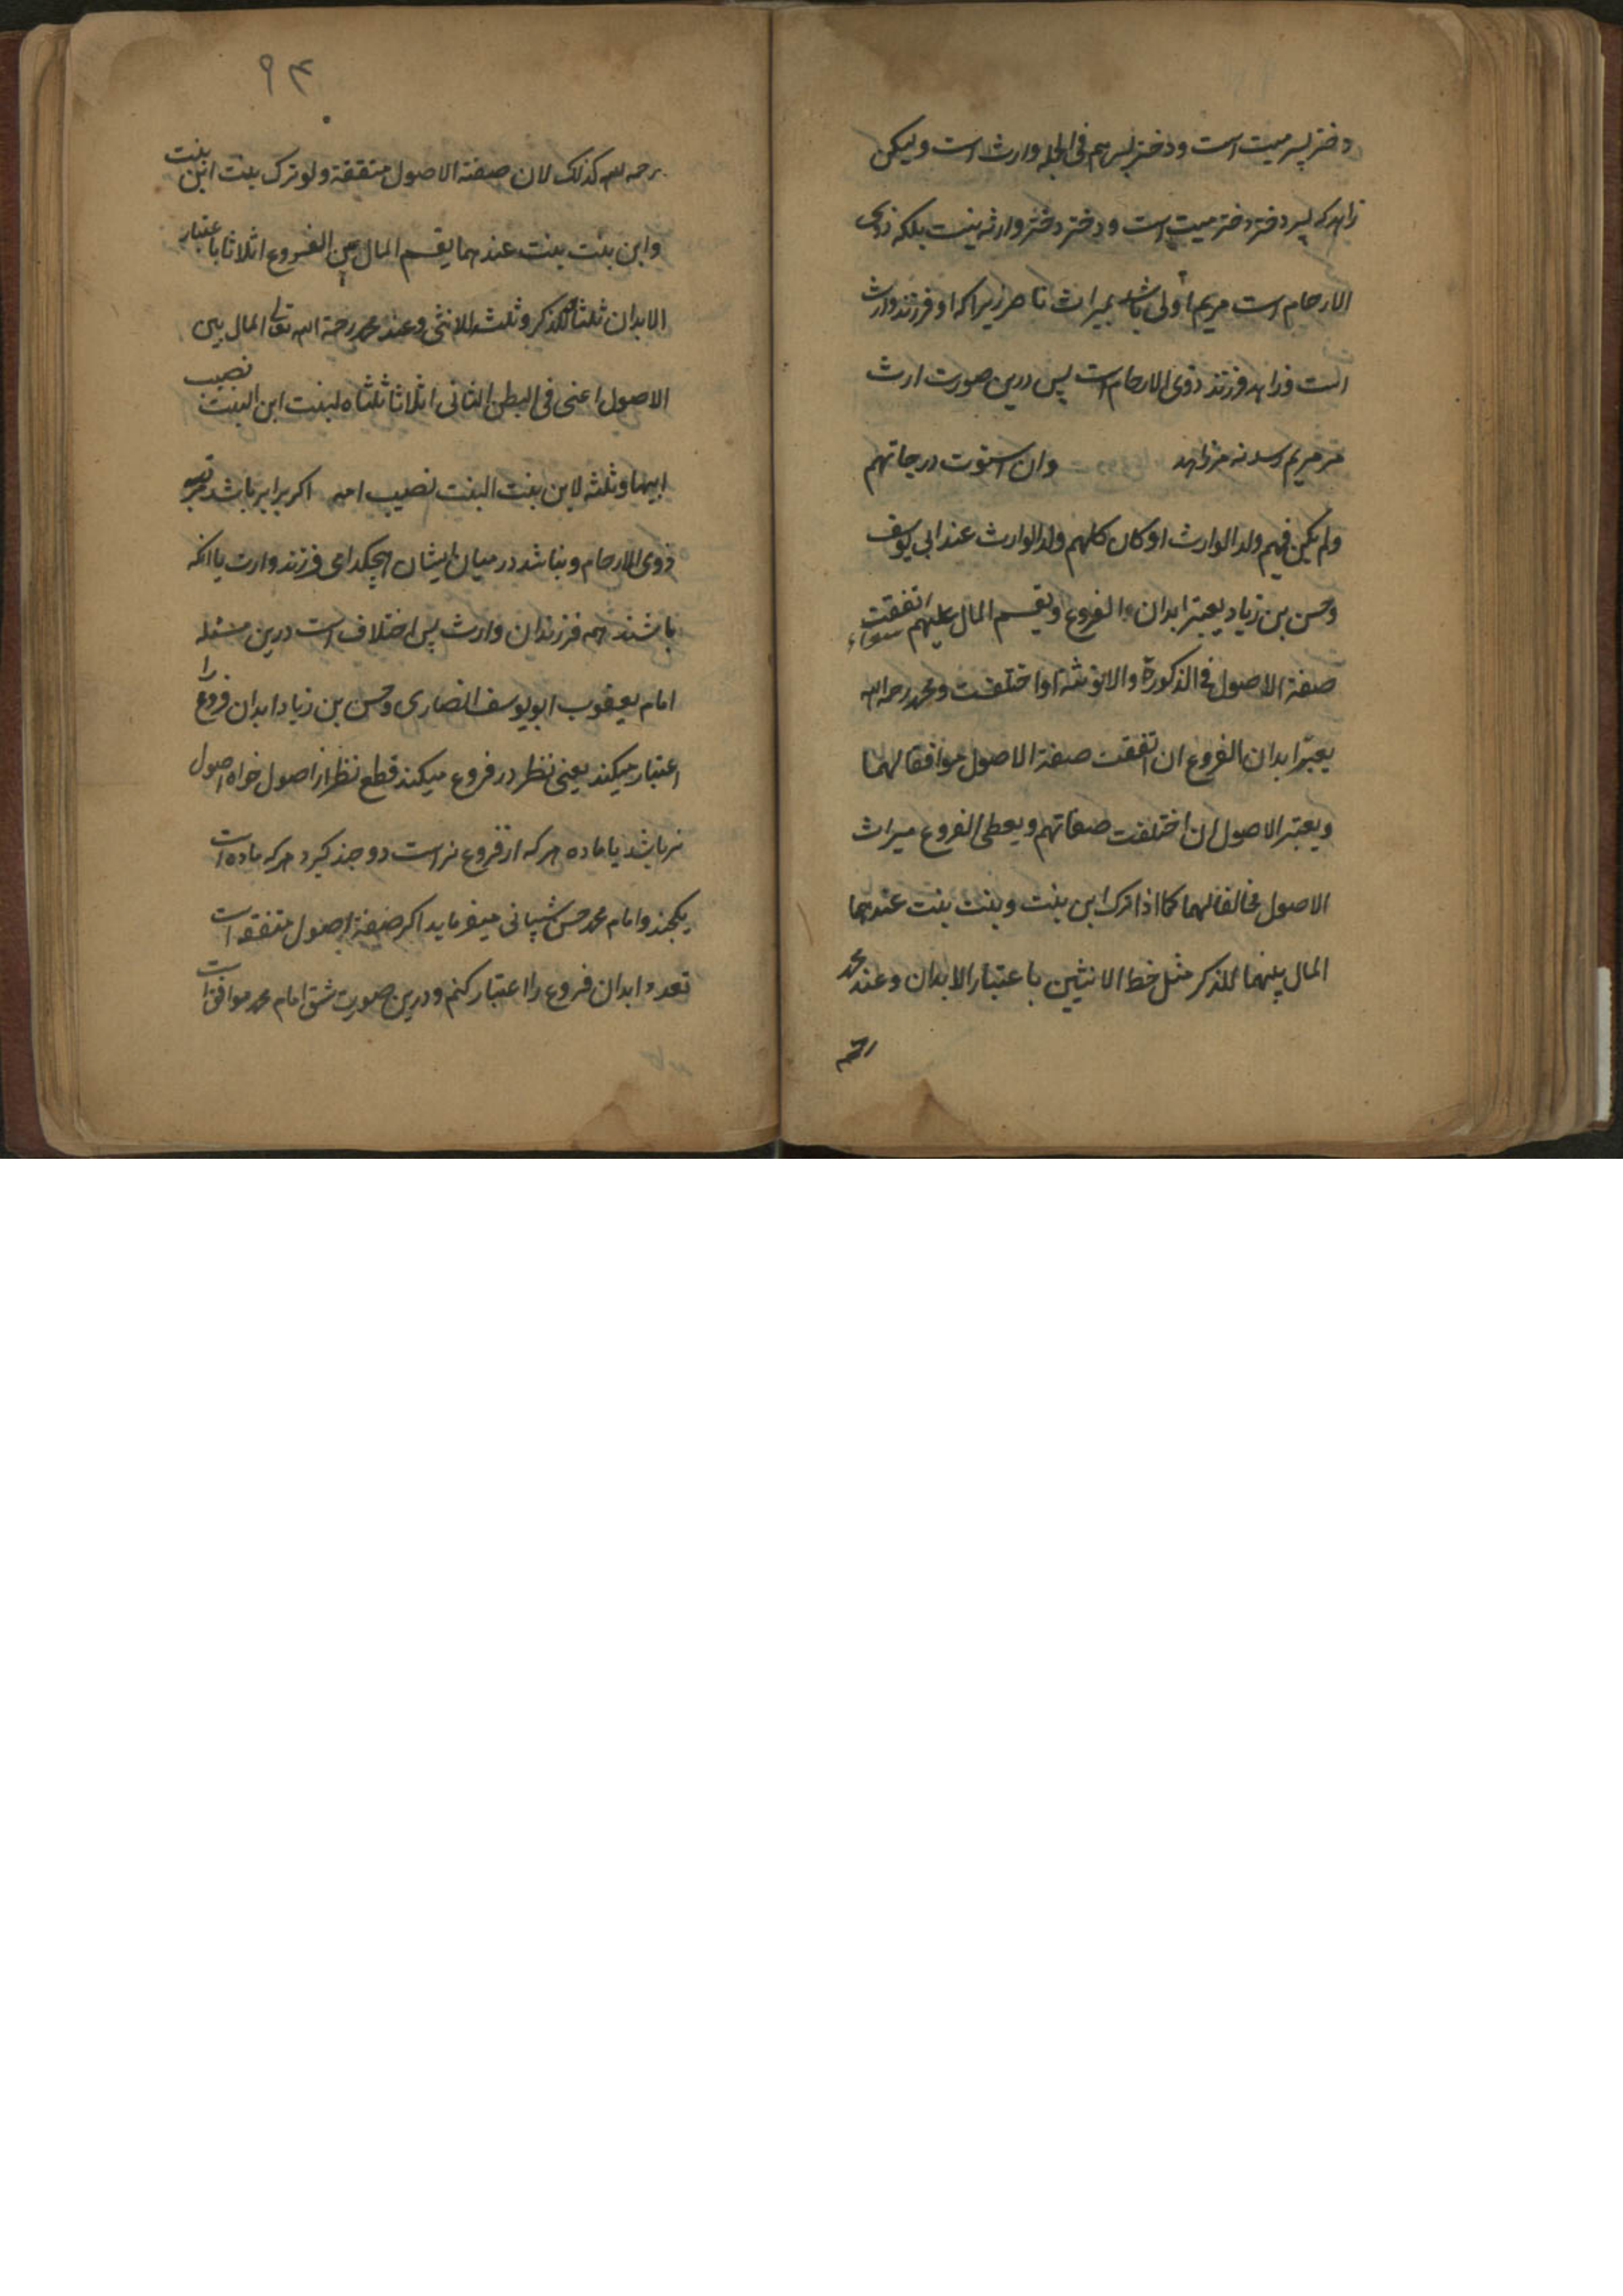 دختر پسر میت است و دختر پسر هم فی الجمله وارث است و لیکن
زاهد که پسر دختر دختر میت است و دختر دختر وارثه نیست بلکه ذوی
الارحام است مریم اولی باشد بمیراث ناصر زیراکه او فرزند وارث
است و زاهد فرزند ذوی الارحام است پس درین صورت ارث
مر مریم رسد نه مر زاهد وان استوت درجاتهم
ولم یکن فیهم ولد الوارث او کان کلهم ولد الوارث عند ابی یوسف
وحسن بن زیاد یعتبر ابدان الفروع ویقسم المال علیهم سواء اتفقت
صفة الاصول فی الذکورة والانوثة او اختلفت ومحمد رحمه الله
یعتبر ابدان الفروع ان اتفقت صفة الاصول موافقا لهما
ویعتبر الاصول ان اختلفت صفاتهم ویعطی الفروع میراث
الاصول مخالفا لهما کما اذا ترک ابن بنت وبنت بنت عندهما
المال بینهما للذکر مثل خط الانثیین باعتبار الابدان وعند محمد
رحمه
۹۴
رحمه الله کذلک لان صفة الاصول متفقة ولو ترک بنت ابن بنت
وابن بنت بنت عندهما یقسم المال بین الفروع اثلاثا باعتبار
الابدان ثلثاه للذکر وثلثه للانثی وعند محمد رحمة الله تعالی المال بین
الاصول اعنی فی البطن الثانی اثلاثا ثلثاه لبنت ابن البنت نصیب
ابیها وثلثه لابن بنت البنت نصیب امه اکر برابر باشد مرتبه
ذوی الارحام و نباشد در میان ایشان هیچکدامی فرزند وارث یا انکه
باشند همه فرزندان وارث پس اختلاف است درین مسئله
امام یعقوب ابو یوسف انصاری و حسن بن زیاد ابدان فروع را
اعتبار میکند یعنی نظر در فروع میکند قطع نظر از اصول خواه اصول
نر باشد یا ماده هر که از فروع نر است دو چند کیرد هر که ماده است
یکچند و امام محمد حسن شیبانی میفرماید اکر صفة اصول متفقه است
تعدد ابدان فروع را اعتبار کنم و درین صورت شق امام محمد موافق است